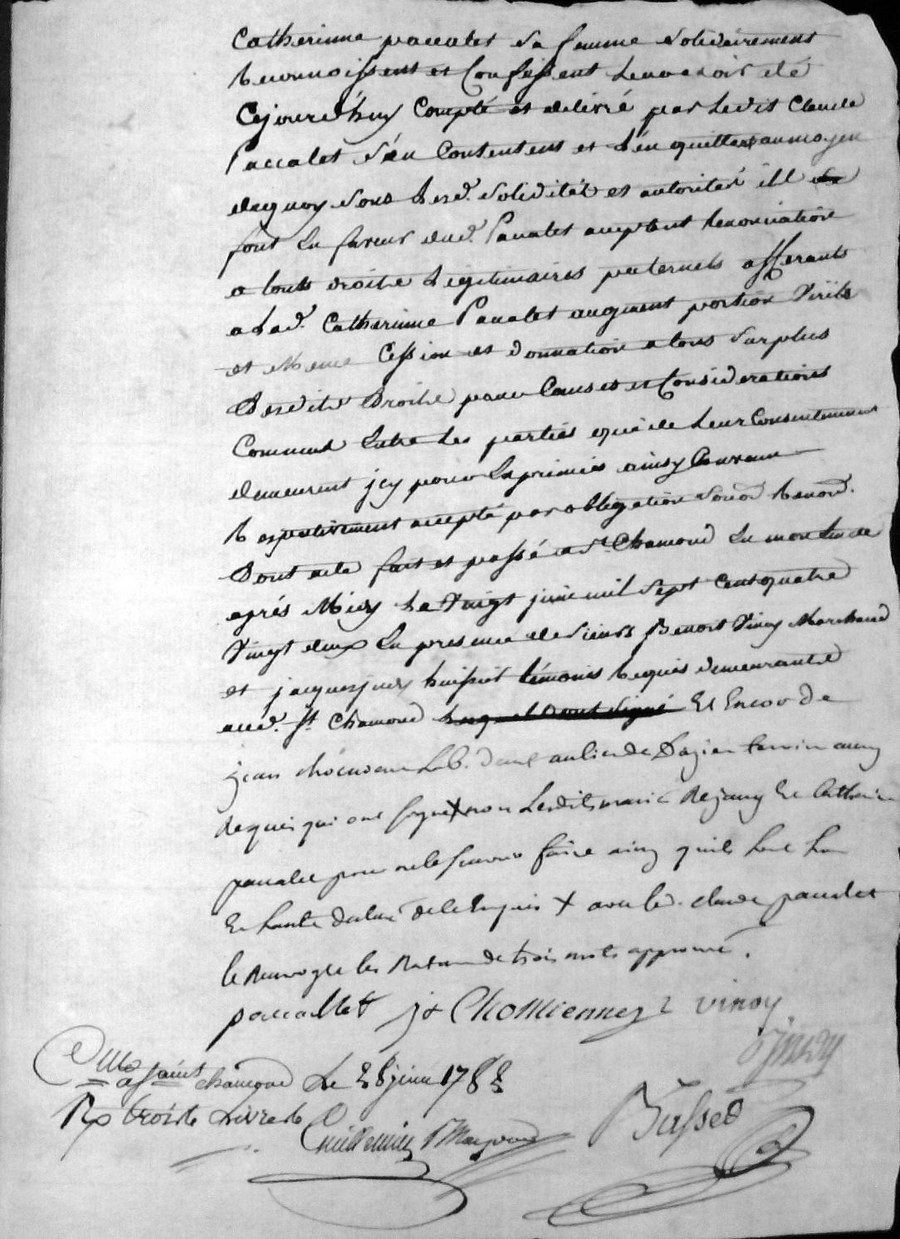 Catherinne paccalet Sa femme Solidairement
Reconnoissent et Confessent Lavoir été
Cejourd'huy Compté et delivré par Ledit Claude
Paccalet S'en Contentent et L'en quittent aumoyen
dequoy Sous Lesd. Solidité et autorité ill
font En faveur dud. Paccalet acceptant Renonciation
a touts droits Légitimaires paternels afferants
a Lad. Catherinne Paccalet augment portion Virile
et Meme Cession et donnation a tous Surplus
Desdits Droits pour Causes et Considerations
Connues Entre Les parties que de Leur Consentement
demeurent jcy pour Exprimées ainsy Convenu
Respectivement accepté par obligation
Dont acte fait et passé a St Chamond En mon Etude
aprés Midy Le Vingt juin mil Sept Cent quatre
Vingt deux En presence de Sieurs Benoit Vinoy Marchand
et jacques huissier témoins Requis demeurants
aud. St Chamond Et Encor de
jean Lab. au lieu de témoin aussy
Requis qui ont signé X non Lesdits mariés et Catherine
paccalet pour ne le Scavoir faire ainsy qu'ils
de ce Enquis X avec led. claude paccalet
le Renvoy et les Ratures de trois mots approuvé.
paccallet j. Chomiennez vinoy
Saint chamond Le 28 juin 1782
Rx trois Livres
Basset